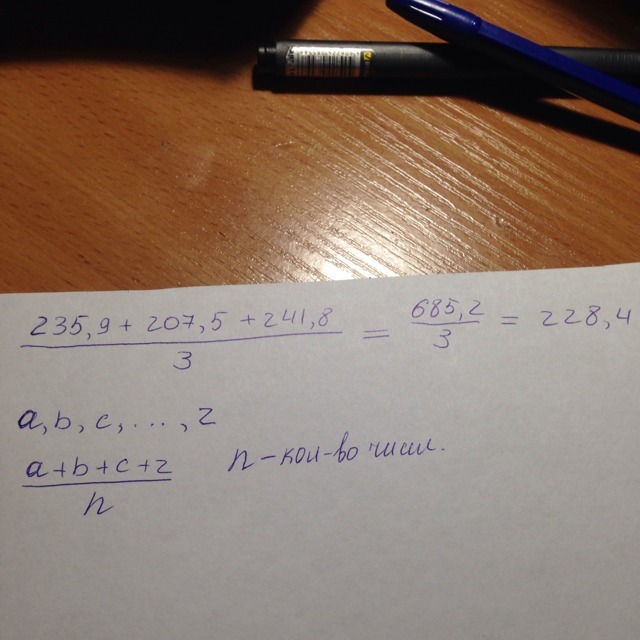 235,9 + 207,5 + 241,8 / 3 = 685,2 / 3 = 228,4
a, b, c, ..., z
a+b+c+z / n n – кол-во чисел.